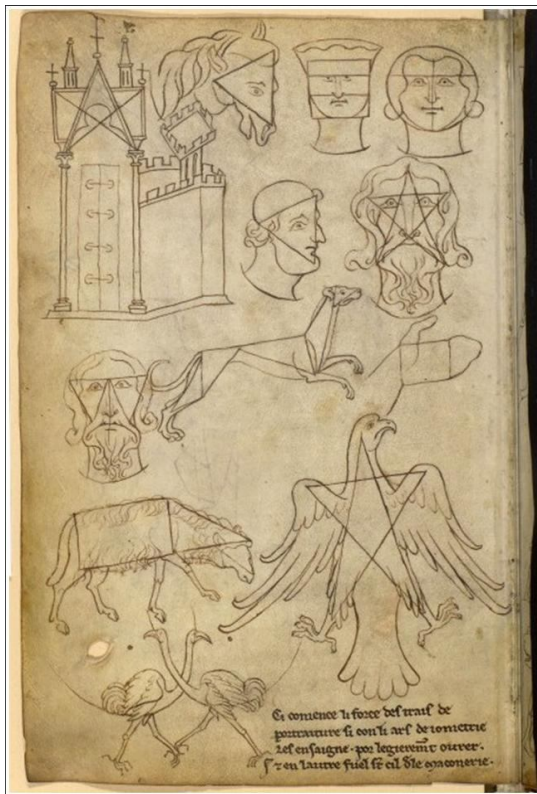 Ci comence li force des trais de
portraiture si con li ars de iometrie
les ensaigne · por legierem̅t ovrer ·
⁊ en lautre fuel st̅ cil d̅le maconerie ·